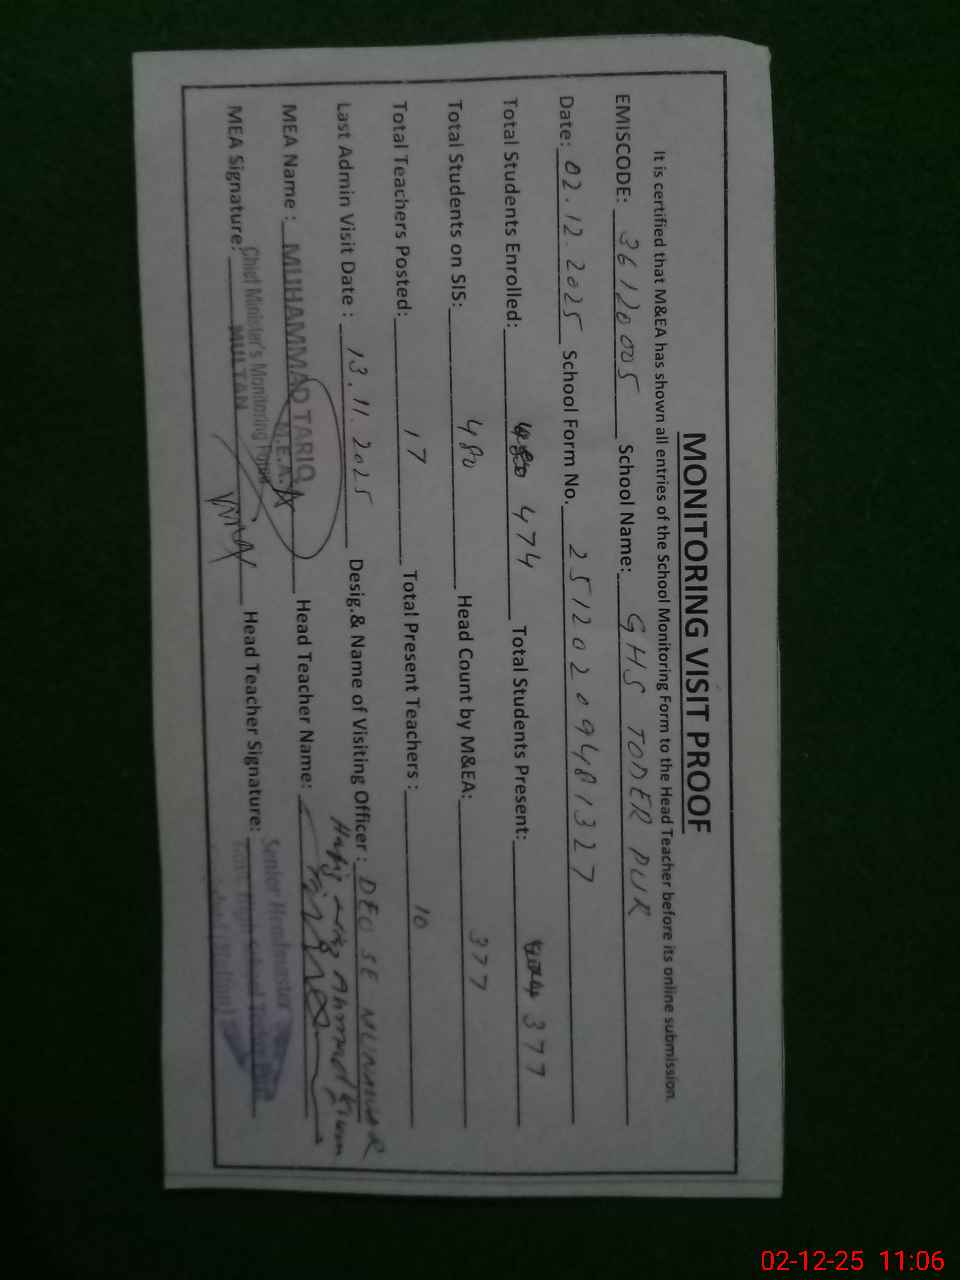 MONITORING VISIT PROOF
It is certified that M&EA has shown all entries of the School Monitoring Form to the Head Teacher before its online submission.
EMISCODE: 36120005 School Name: GHS TODER PUR
Date: 02.12.2025 School Form No. 2512020948 1327
Total Students Enrolled: 474 Total Students Present: 377
Total Students on SIS: 480 Head Count by M&EA: 377
Total Teachers Posted: 17 Total Present Teachers : 10
Last Admin Visit Date : 13.11.2025 Desig.& Name of Visiting Officer : DEO SE
MEA Name : MUHAMMAD TARIQ Head Teacher Name:
M.E.A.
Chief Minister's Monitoring
MEA Signature: MULTAN Head Teacher Signature:
Senior Headmaster
02-12-25 11:06